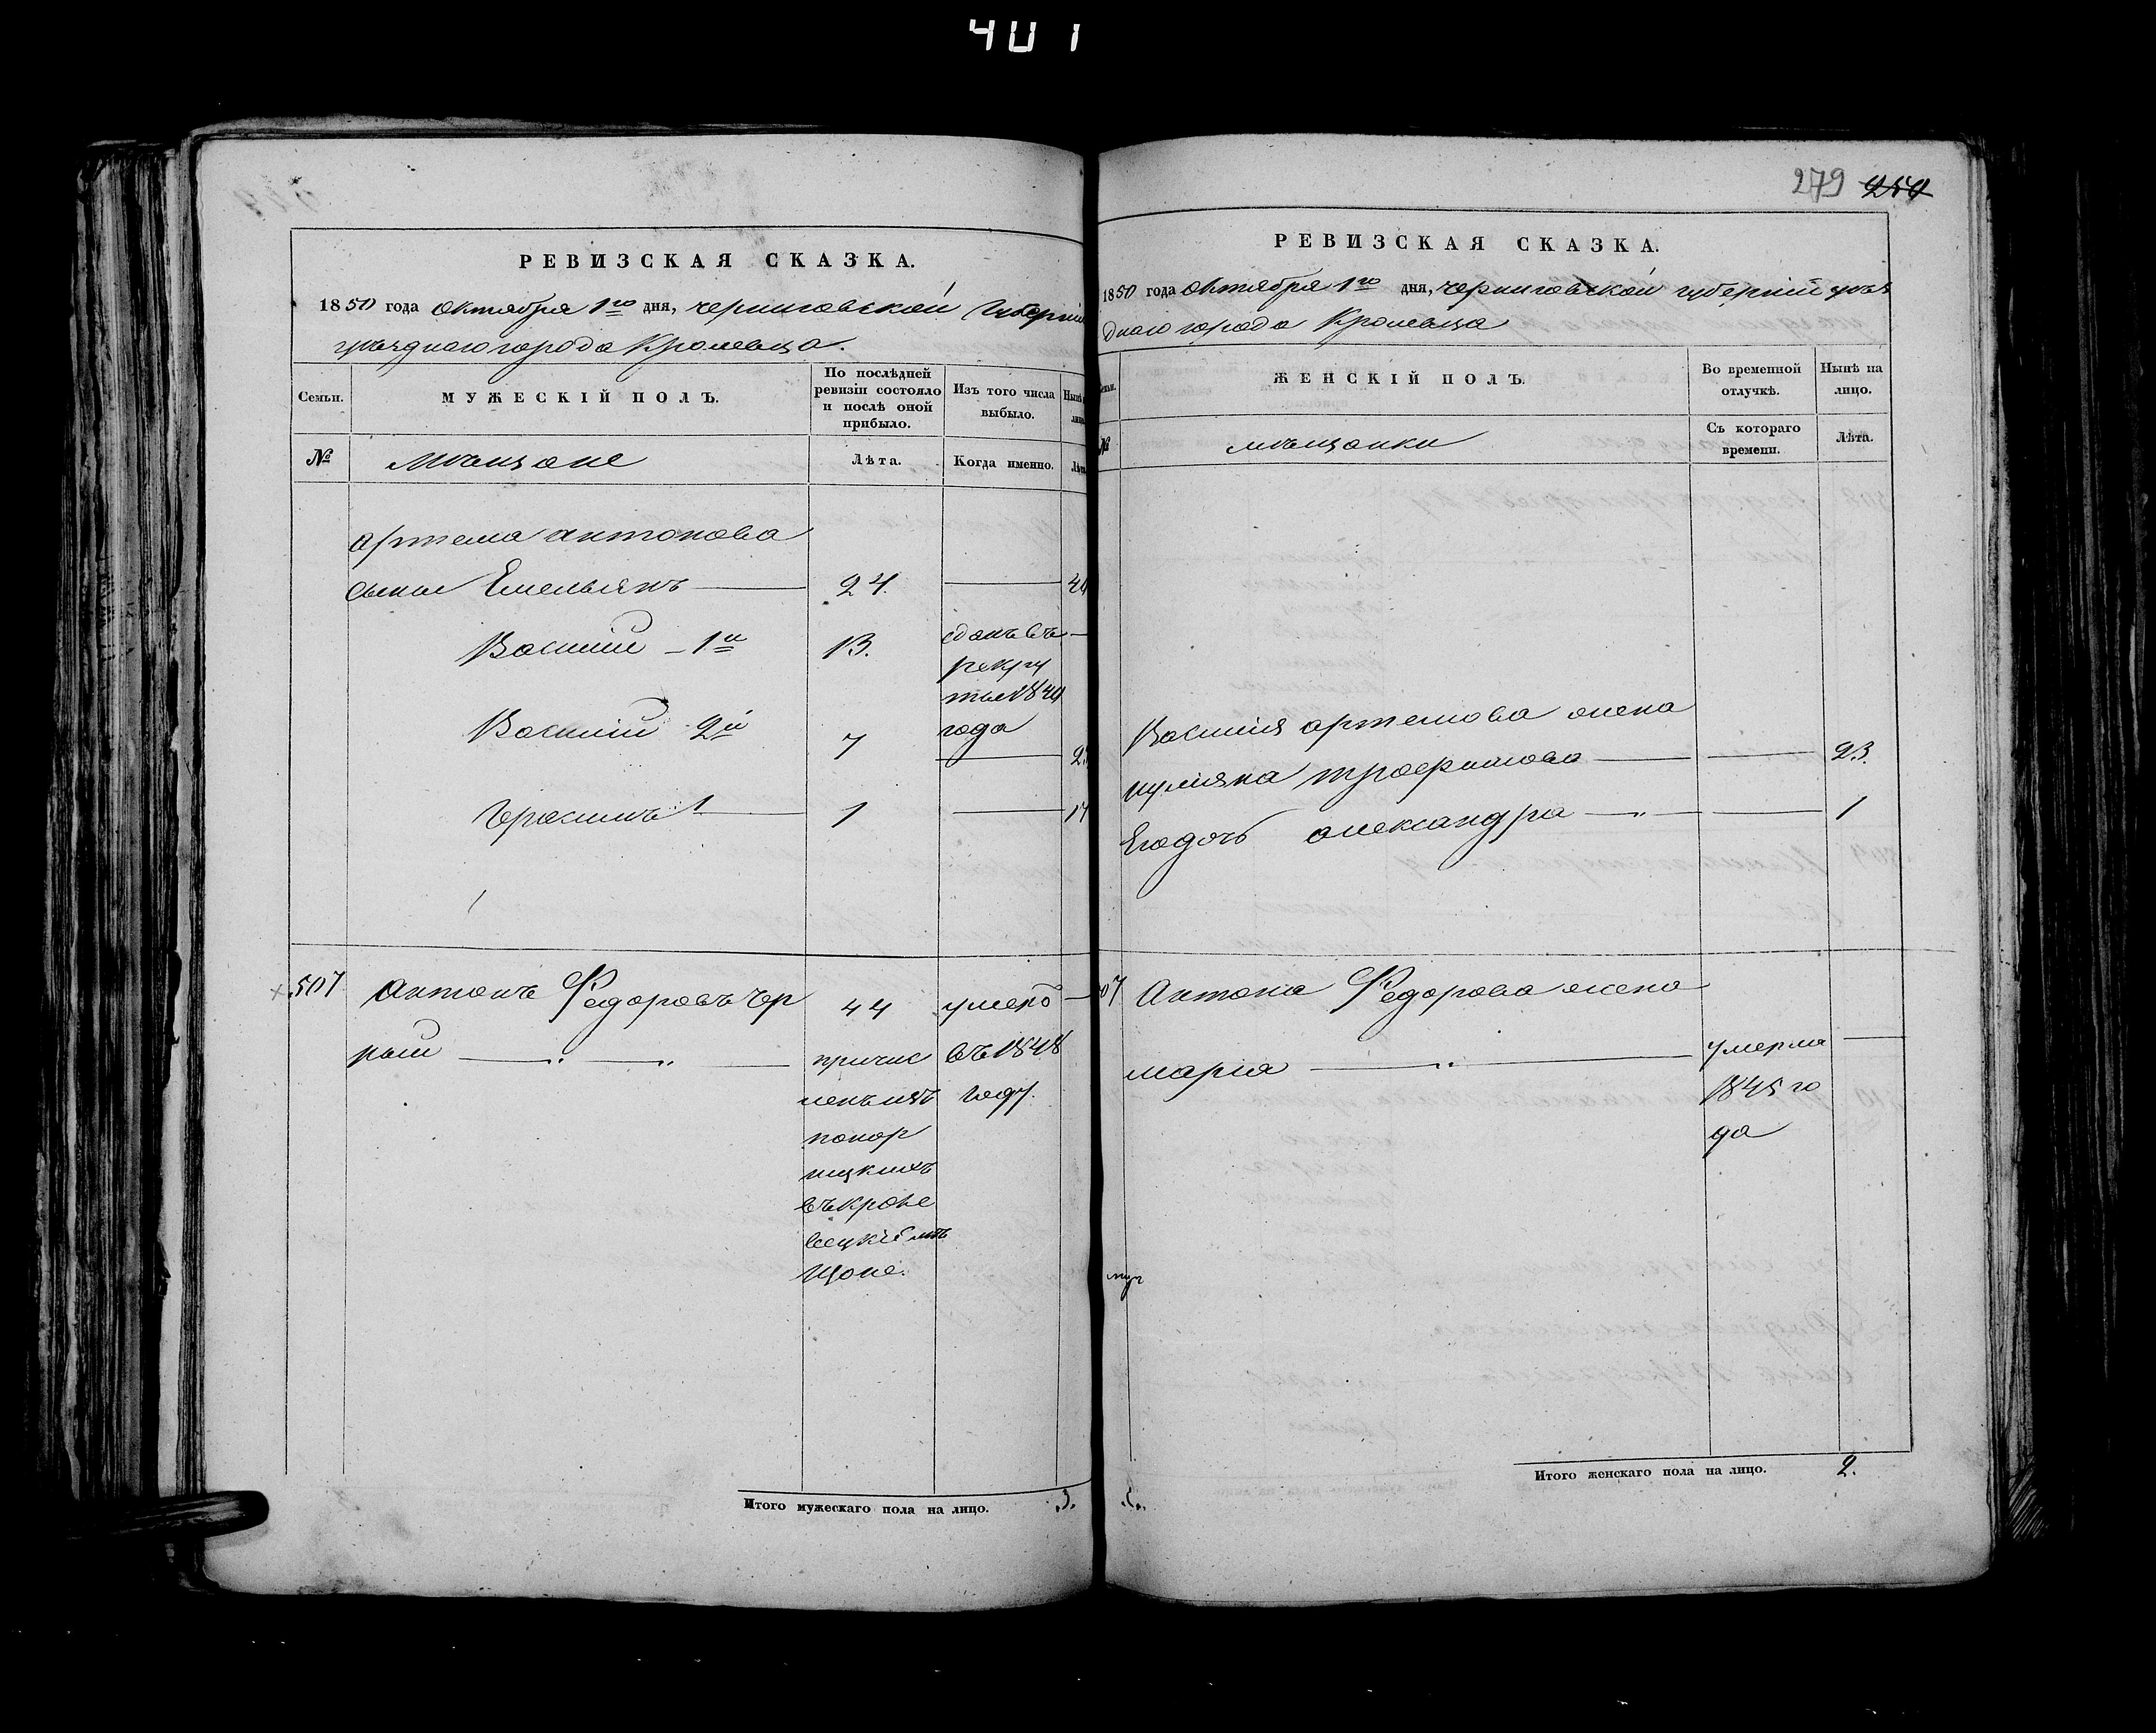 401
РЕВИЗСКАЯ СКАЗКА.
1850 года Октября 1го дня, черниговской Губерніи
уѣзднаго города Кролевца.
Семьи.
МУЖЕСКІЙ ПОЛЪ.
По послѣдней
ревизіи состояло
и послѣ оной
прибыло.
Изъ того числа
выбыло.
№
мѣщане
Лѣта.
Когда именно.
Артема Антонова
сыны Емельянъ 24.
Василій 1й 13. сданъ въ
рекру
ты 1844
года
Василій 2й 7
Герасимъ 1
507 Антонъ Федоровъ Чер 44 умеръ
ныш причис въ 1848
ленъ изъ году.
понор
ницкихъ
въ кроле
вецкіе мѣ
щане.
Итого мужескаго пола на лицо. 3.
279 250
РЕВИЗСКАЯ СКАЗКА.
1850 года Октября 1го дня, черниговской губерніи уѣз
днаго города Кролевца
ЖЕНСКІЙ ПОЛЪ.
Во временной
отлучкѣ.
Нынѣ на
лицо.
№
мѣщанки
Съ котораго
времени.
Лѣта.
Василія Артемова жена
иулияна трофимова 23.
Егодочь александра 1
07 Антона Федорова жена
марія умерла
1845 го
да
Итого женскаго пола на лицо. 2.